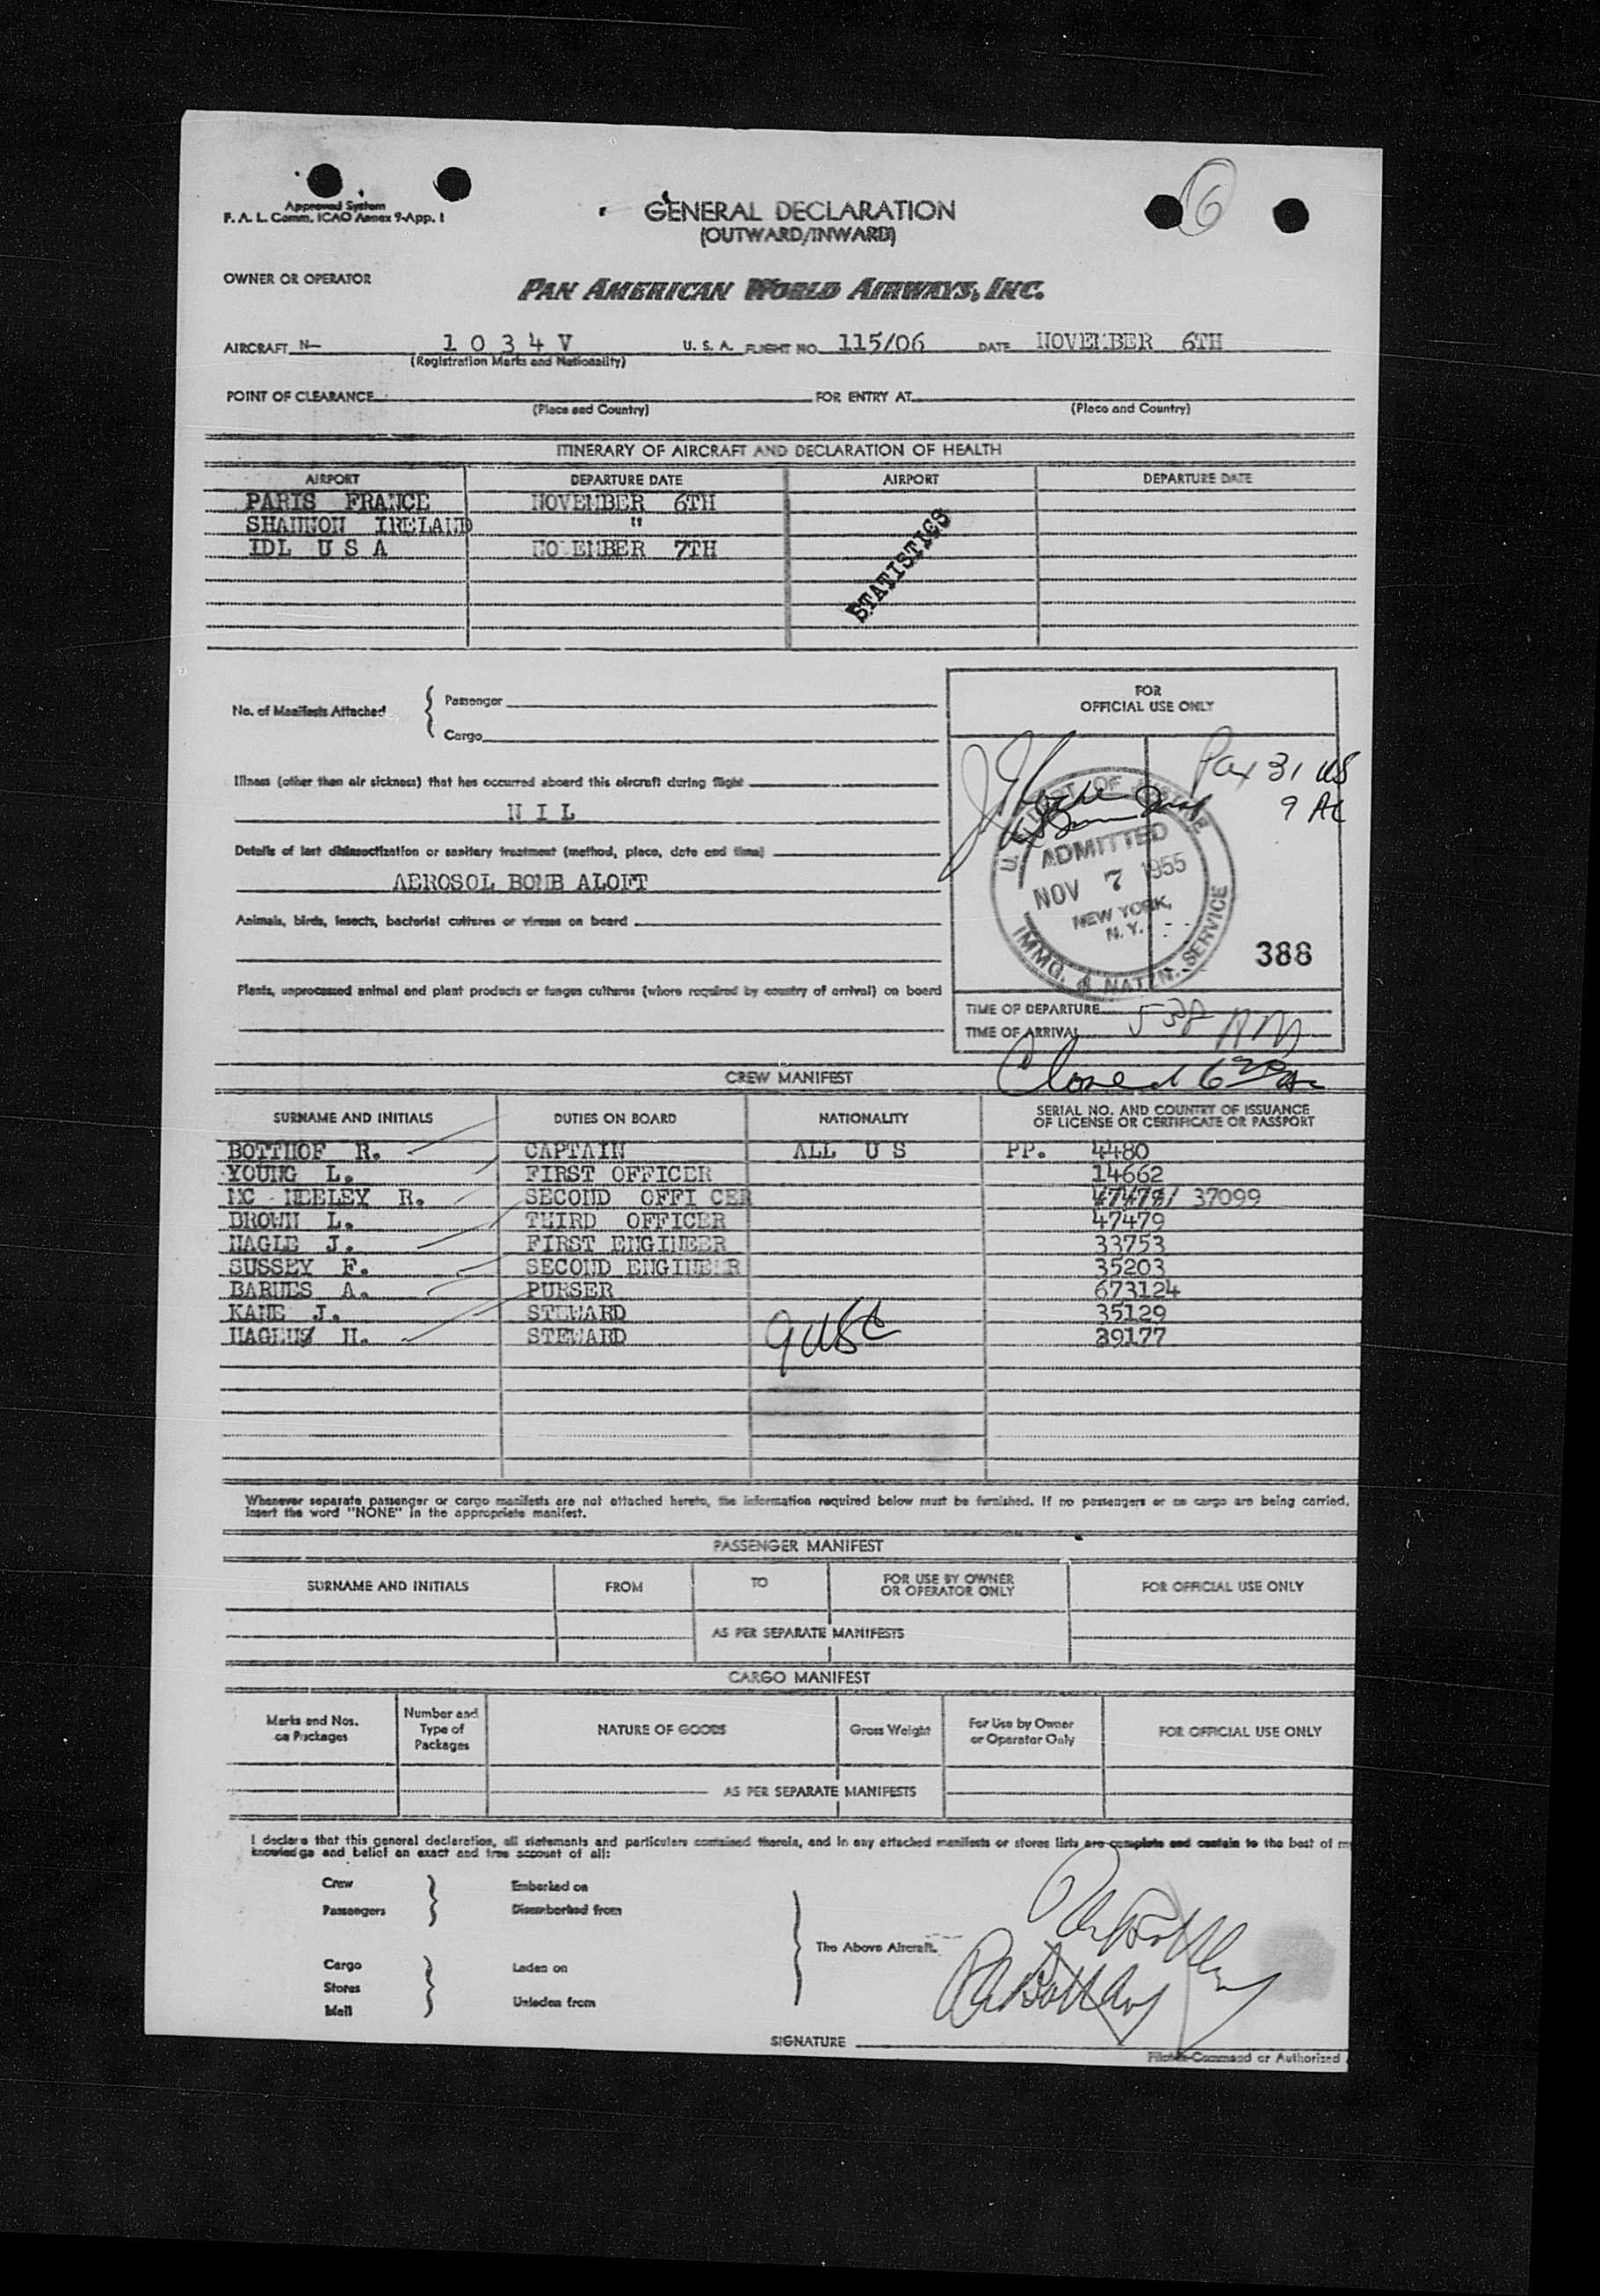 6
Approved System
F. A. L. Comm. ICAO Annex 9-App. 1
GENERAL DECLARATION
(OUTWARD/INWARD)
OWNER OR OPERATOR PAN AMERICAN WORLD AIRWAYS, INC.
AIRCRAFT N- 1 0 3 4 V U. S. A. FLIGHT NO. 115/06 DATE NOVEMBER 6TH
(Registration Marks and Nationality)
POINT OF CLEARANCE FOR ENTRY AT
(Place and Country) (Place and Country)
ITINERARY OF AIRCRAFT AND DECLARATION OF HEALTH
AIRPORT DEPARTURE DATE AIRPORT DEPARTURE DATE
PARIS FRANCE NOVEMBER 6TH
SHANNON IRELAND "
IDL U S A NOVEMBER 7TH
STATISTICS
No. of Manifests Attached { Passenger
Cargo
FOR
OFFICIAL USE ONLY
Pax 31 US
9 AL
Illness (other than air sickness) that has occurred aboard this aircraft during flight
N I L
Details of last disinsectization or sanitary treatment (method, place, date and time)
AEROSOL BOMB ALOFT
Animals, birds, insects, bacterial cultures or viruses on board
Plants, unprocessed animal and plant products or fungus cultures (where required by country of arrival) on board
U. S. DEPT. OF JUSTICE
ADMITTED
NOV 7 1955
NEW YORK,
N. Y.
IMMG. & NATZN. SERVICE
388
TIME OF DEPARTURE
TIME OF ARRIVAL 538 AM
Closed 6
CREW MANIFEST
SURNAME AND INITIALS DUTIES ON BOARD NATIONALITY SERIAL NO. AND COUNTRY OF ISSUANCE
OF LICENSE OR CERTIFICATE OR PASSPORT
BOTTHOF R. CAPTAIN ALL U S PP. 4480
YOUNG L. FIRST OFFICER 14662
MC NEELEY R. SECOND OFFI CER 47478/ 37099
BROWN L. THIRD OFFICER 47479
NAGLE J. FIRST ENGINEER 33753
SUSSEY F. SECOND ENGINEER 35203
BARNES A. PURSER 673124
KANE J. STEWARD 35129
H. STEWARD 9 USC 39177
Whenever separate passenger or cargo manifests are not attached hereto, the information required below must be furnished. If no passengers or no cargo are being carried,
insert the word "NONE" in the appropriate manifest.
PASSENGER MANIFEST
SURNAME AND INITIALS FROM TO FOR USE BY OWNER
OR OPERATOR ONLY FOR OFFICIAL USE ONLY
AS PER SEPARATE MANIFESTS
CARGO MANIFEST
Marks and Nos.
on Packages Number and
Type of
Packages NATURE OF GOODS Gross Weight For Use by Owner
or Operator Only FOR OFFICIAL USE ONLY
AS PER SEPARATE MANIFESTS
I declare that this general declaration, all statements and particulars contained therein, and in any attached manifests or stores lists are complete and contain to the best of my
knowledge and belief an exact and true account of all:
Crew } Embarked on
Passengers Disembarked from
The Above Aircraft.
Cargo Laden on
Stores
Mail Unladen from
SIGNATURE
Pilot-in-Command or Authorized